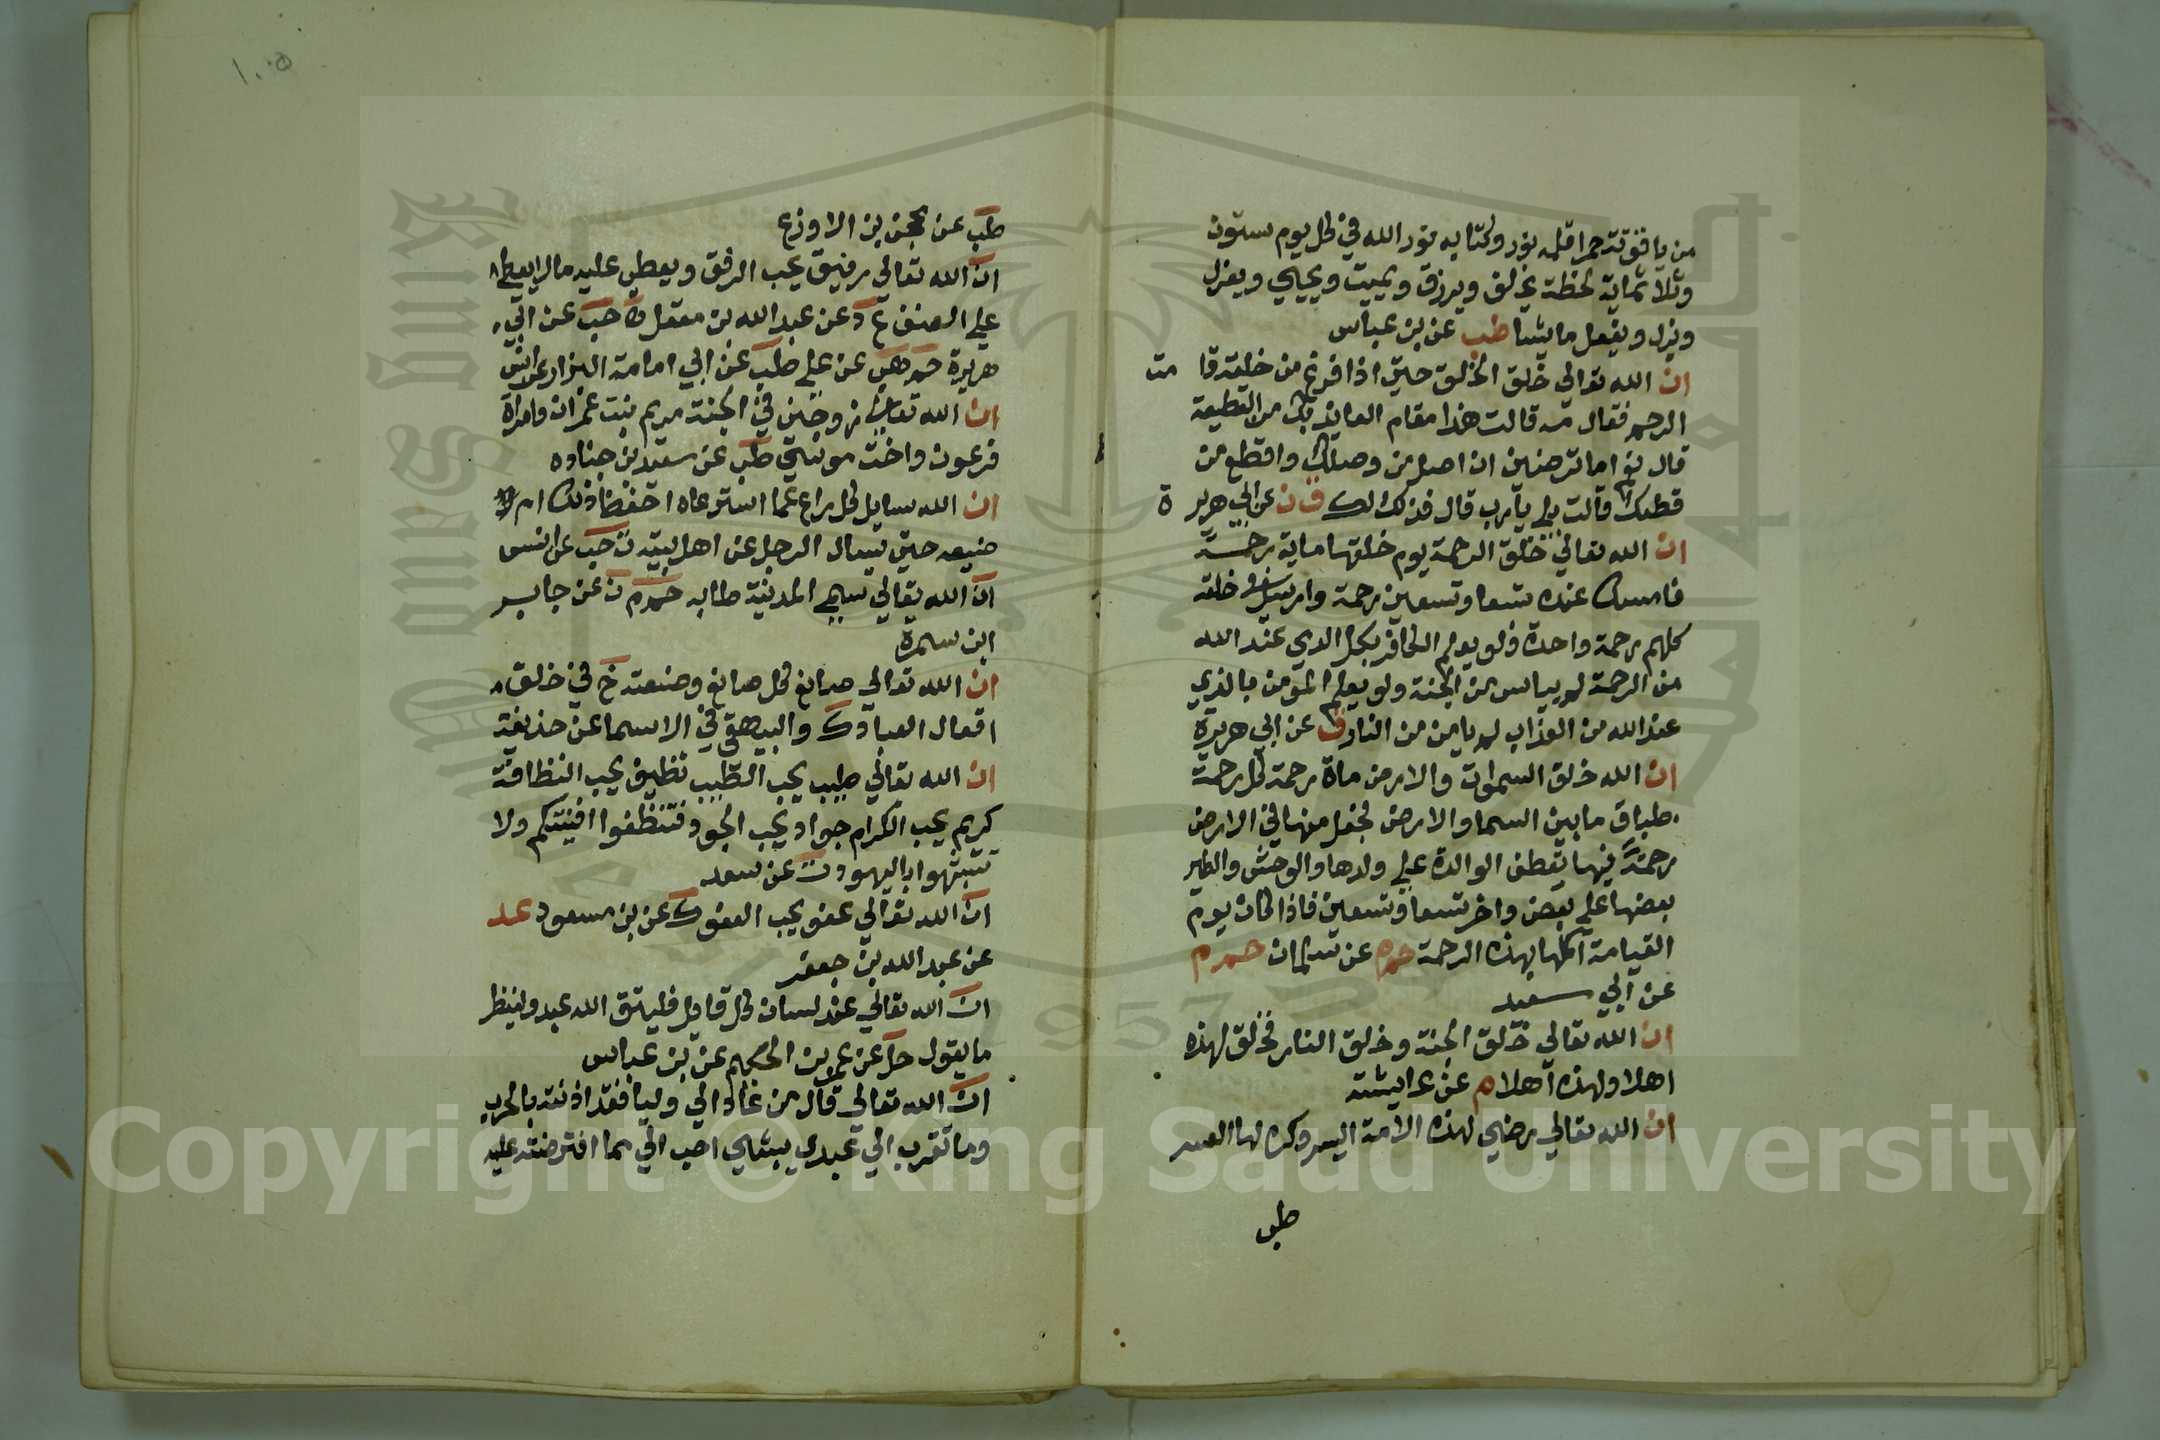 من ياقوتة حمرا قلمه نور وكتابه نور الله في كل يوم ستون
وثلاثماية لحظة يخلق ويرزق ويميت ويحيي ويعزل
ويذل ويفعل ما يشا طب عن بن عباس
ان الله تعالى خلق الخلق حتى اذا فرغ من خلقه قامت
الرحم فقال مه قالت هذا مقام العايذ بك من القطيعة
قال نعم اما ترضين ان اصل من وصلك واقطع من
قطعك قالت بلى يا رب قال فذلك لك ق ن عن ابي هريرة
ان الله تعالى خلق الرحمة يوم خلقها ماية رحمة
فامسك عنده تسعا وتسعين رحمة وارسل في خلقه
كلهم رحمة واحدة فلو يعلم الكافر بكل الذي عند الله
من الرحمة لم ييأس من الجنة ولو يعلم المؤمن بالذي
عند الله من العذاب لم يامن من النار ق عن ابي هريرة
ان الله خلق السموات والارض ماة رحمة كل رحمة
طباق ما بين السما والارض فجعل منها في الارض
رحمة فبها تعطف الوالدة على ولدها والوحش والطير
بعضها على بعض واخر تسعا وتسعين فاذا كان يوم
القيامة اكملها بهذه الرحمة حم م عن سلمان حم م
عن ابي سعيد
ان الله تعالى خلق الجنة وخلق النار فخلق لهذه
اهلا ولهذه اهلا م عن عايشة
ان الله تعالى رضي لهذه الامة اليسر وكره لها العسر
طب
١٠٥
طب عن محجن بن الاوزع
ان الله تعالى رفيق يحب الرفق ويعطي عليه ما لا يعطي
على العنف خ د عن عبد الله بن مغفل ه حب عن ابي
هريرة حم هب عن علي طب عن ابي امامة البزار عن انس
ان الله تعالى زوجني في الجنة مريم بنت عمران وامراة
فرعون واخت موسى طب عن سعيد بن جناده
ان الله سايل كل راع عما استرعاه احفظ ذلك ام
ضيعه حتى يسال الرجل عن اهل بيته ن حب عن انس
ان الله تعالى سمى المدينة طابه حم م ن عن جابر
ابن سمرة
ان الله تعالى صانع كل صانع وصنعته خ في خلق
افعال العباد ك والبيهقي في الاسما عن حذيفة
ان الله تعالى طيب يحب الطيب نظيف يحب النظافة
كريم يحب الكرام جواد يحب الجود فتنظفوا افنيتكم ولا
تتشبهوا باليهود ت عن سعد
ان الله تعالى عفو يحب العفو ك عن بن مسعود عد
عن عبد الله بن جعفر
ان الله تعالى عند لسان كل قايل فليتق الله عبد ولينظر
ما يقول حل عن عمر بن الحكيم عن بن عباس
ان الله تعالى قال من عاد الي وليا فقد اذنته بالحرب
وما تقرب الي عبدي بشاي احب الي مما افترضته عليه
Copyright © King Saud University
King Saud University
1957